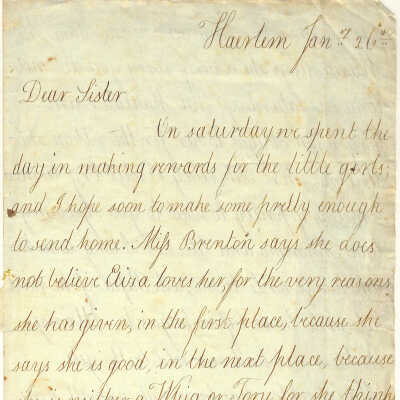 Haerlem Jan.y 26th
Dear Sister
On saturday we spent the
day in making rewards for the little girls;
and I hope soon to make some pretty enough
to send home. Miss Brenton says she does
not believe Eliza loves her, for the very reasons
she has given, in the first place, because she
says she is good, in the next place, because
she is neither a Whig or Tory for she think